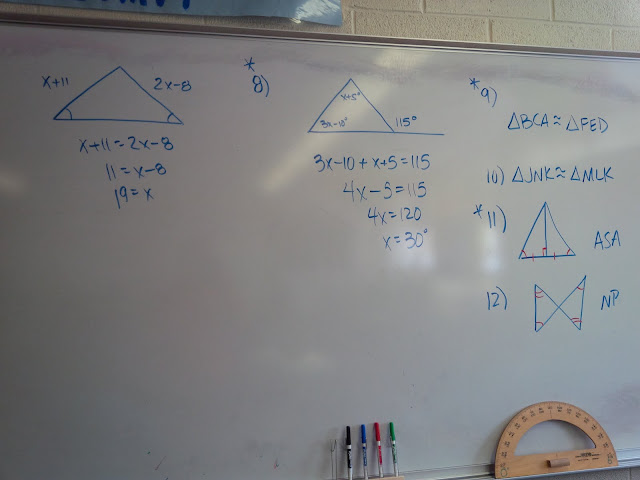 x+11 2x-8
x+11=2x-8
11=x-8
19=x
*
8)
x+5°
3x-10° 115°
3x-10+x+5=115
4x-5=115
4x=120
x=30°
*9)
△BCA≈△FED
10) △JNK≈△MLK
*11)
ASA
12)
NP